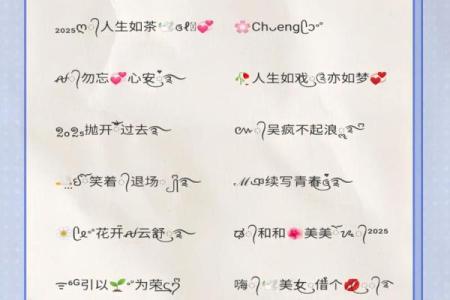 2025ღ᭄人生如茶🕊️ꦿℓ💞
🌸Chᴗengᦔꦿ
ꪝ᭄勿忘💞心安ღ࿐
🥀人生如戏ꦿ亦如梦💞
2025抛开ꦿ过去࿐
ᰔᩚ᭄吴疯不起浪ꦿ࿐
ꦿ᭄笑着᭄退场ꦿ࿐
ℳ续写青春ღ࿐
🌼ᦔꦿ花开ꪝ云舒ꦿ࿐
᭄和和🌺美美ꦿ᭄²⁰²⁵
⁶ᴳ引以🌱为荣ꦿ᭄
嗨᭄🕊️美女ꦿ借个💋᭄࿐